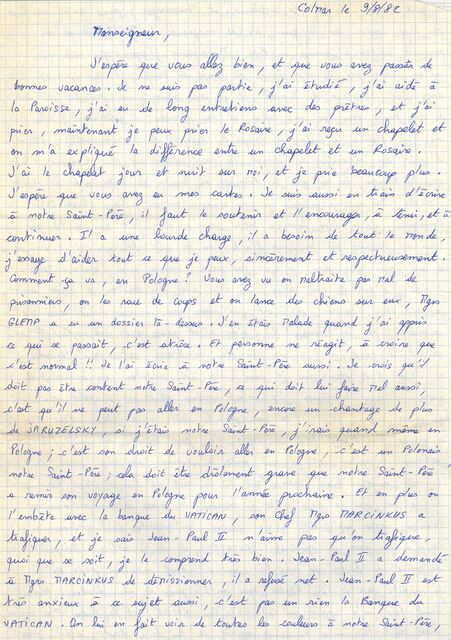 Colmar le 9/8/82
Monseigneur,
J'espère que vous allez bien, et que vous avez passer de
bonnes vacances. Je ne suis pas partie, j'ai étudié, j'ai aidé à
la Paroisse, j'ai eu de long entretiens avec des prêtres, et j'ai
prier, maintenant je peux prier le Rosaire, j'ai reçu un chapelet et
on m'a expliqué la différence entre un chapelet et un Rosaire.
J'ai le chapelet jour et nuit sur moi, et je prie beaucoup plus.
J'espère que vous avez eu mes cartes. Je suis aussi en train d'écrire
à notre Saint-Père, il faut le soutenir et l'encourager, à tenir, et à
continuer. Il a une lourde charge, il a besoin de tout le monde,
j'essaye d'aider tout ce que je peux, sincèrement et respectueusement.
Comment ça va, en Pologne? Vous avez vu on maltraite pas mal de
prisonniers, on les roue de coups et on lance des chiens sur eux, Mgrs
GLEMP a eu un dossier là-dessus. J'en étais malade quand j'ai appris
ce qui se passait, c'est atroce. Et personne ne réagit, à croire que
c'est normal!! Je l'ai écrit à notre Saint-Père aussi. Je crois qu'il
doit pas être content notre Saint-Père, ce qui doit lui faire mal aussi,
c'est qu'il ne peut pas aller en Pologne, encore un chantage de plus
de JARUZELSKY, si j'étais notre Saint-Père, j'irais quand même en
Pologne; c'est son droit de vouloir aller en Pologne, c'est un Polonais
notre Saint-Père; cela doit être drôlement grave que notre Saint-Père
a remis son voyage en Pologne pour l'année prochaine. Et en plus on
l'embête avec la banque du VATICAN, son chef Mgrs MARCINKUS a
trafiquer, et je sais Jean-Paul II n'aime pas qu'on trafique,
quoi que se soit, je le comprend très bien. Jean-Paul II a demandé
à Mgrs MARCINKUS de démissionner, il a refusé net. Jean-Paul II est
très anxieux à ce sujet aussi, c'est pas un rien la Banque du
VATICAN. On lui en fait voir de toutes les couleurs à notre Saint-Père,